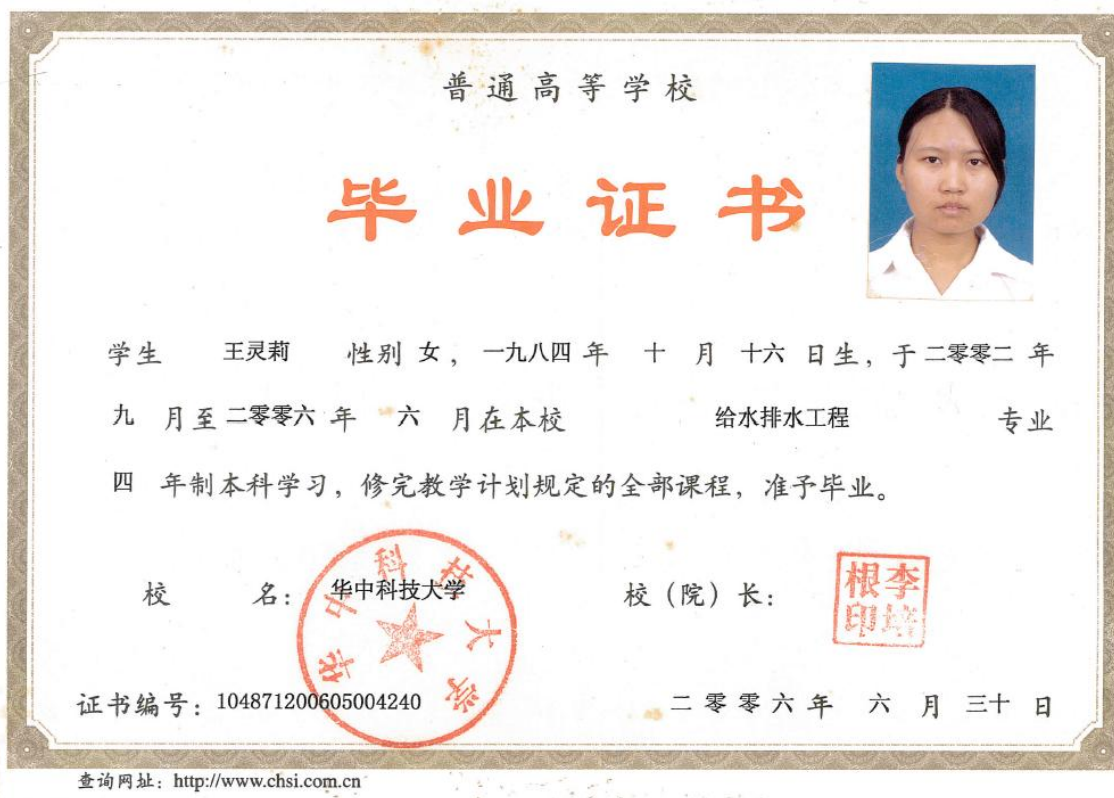 普通高等学校
毕业证书
学生 王灵莉 性别 女 ， 一九八四 年 十 月 十六 日生， 于 二零零二 年
九 月至 二零零六 年 六 月在本校 给水排水工程 专业
四 年制本科学习，修完教学计划规定的全部课程，准予毕业。
校 名： 华中科技大学 校（院）长：
华中科技大学
李培根印
证书编号：104871200605004240 二零零六年 六 月 三十 日
查询网址：http://www.chsi.com.cn